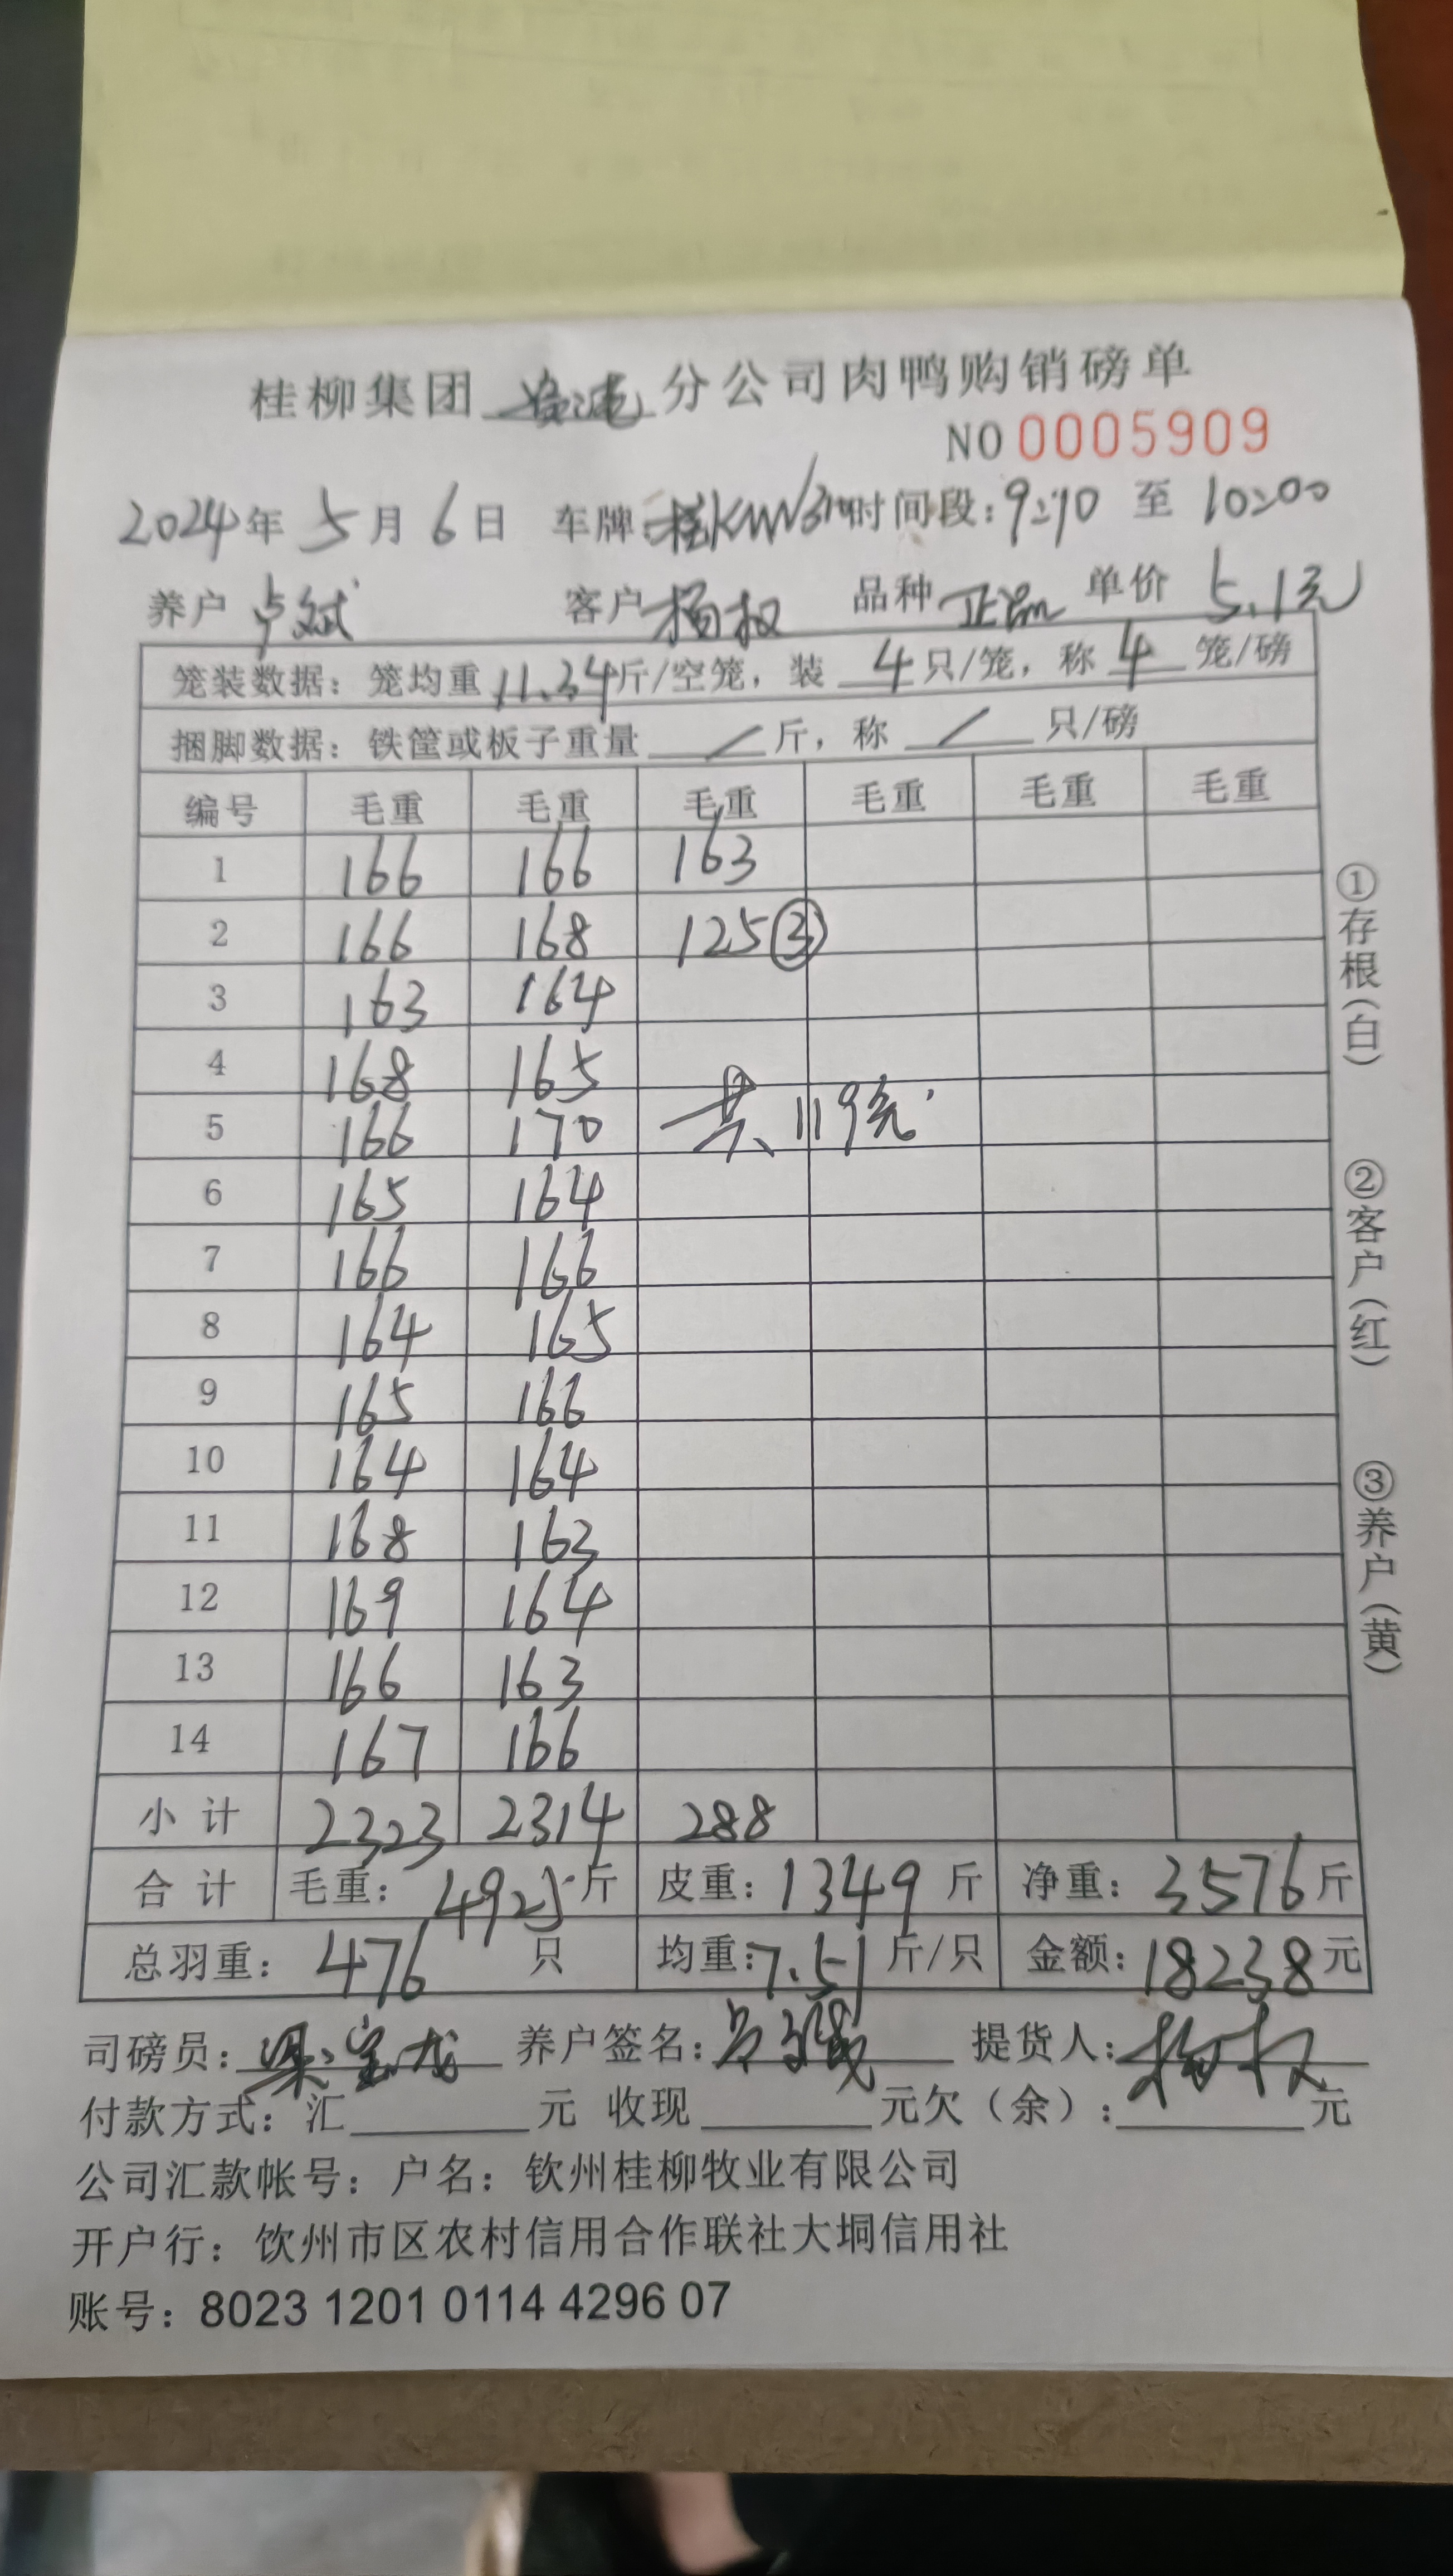 桂柳集团 分公司肉鸭购销磅单
NO 0005909
2024年 5月 6日 车牌: 时间段: 9:10 至 10:00
养户 卢斌 客户 杨权 品种 正品 单价 5.1元
笼装数据: 笼均重 11.34斤/空笼, 装 4 只/笼, 称 4 笼/磅
捆脚数据: 铁筐或板子重量 / 斤, 称 / 只/磅
编号 毛重 毛重 毛重 毛重 毛重 毛重
1 166 166 163
2 166 168 125③
3 163 164
4 168 165
5 166 170 共119笼
6 165 164
7 166 166
8 164 165
9 165 166
10 164 164
11 168 163
12 169 164
13 166 163
14 167 166
小计 2323 2314 288
合计 毛重: 4925斤 皮重: 1349斤 净重: 3576斤
总羽重: 476 只 均重: 7.51斤/只 金额: 18238元
司磅员: 梁宝龙 养户签名: 提货人: 杨权
付款方式: 汇 元 收现 元欠(余): 元
公司汇款帐号: 户名: 钦州桂柳牧业有限公司
开户行: 钦州市区农村信用合作联社大垌信用社
账号: 8023 1201 0114 4296 07
①存根(白) ②客户(红) ③养户(黄)